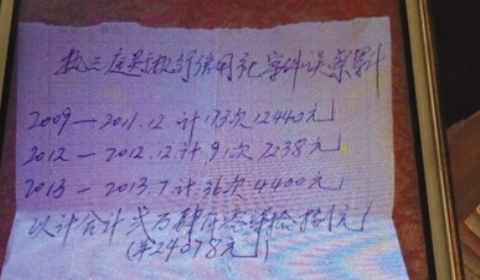 执三庭执行信用社案件误餐累计
2009—2011.12计173次12440元
2012—2012.12计91次7238元
2013—2013.7计36次4400元
以计合计贰万肆仟零柒拾捌元
(¥24078元)